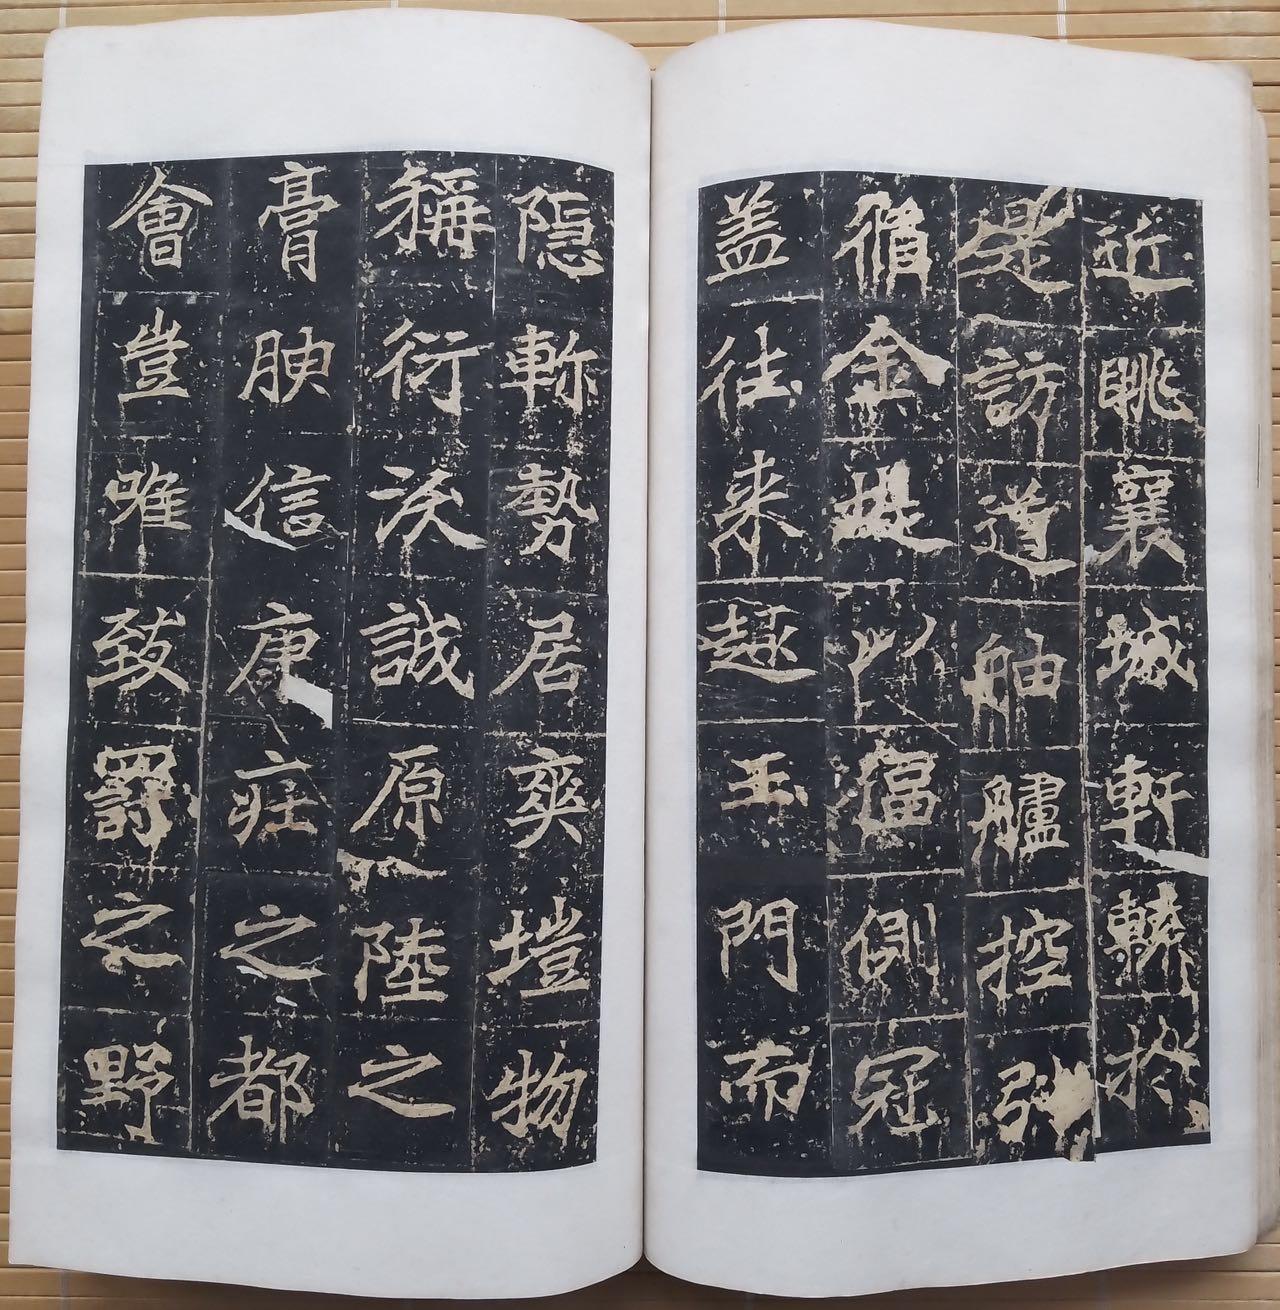 近眺襄城軒轅於
是訪道舳艫控引
循金堤以逼側冠
盖往来趍玉門而
隐軫勢居爽塏物
稱衍沃誠原陸之
膏腴信康莊之都
會豈唯致罰之野